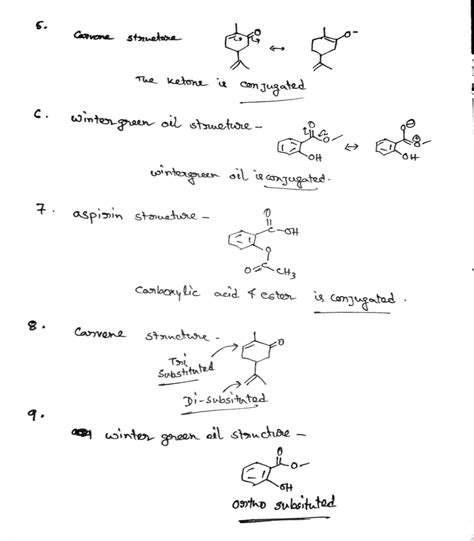 5. Carvone structure
O
O⁻
↔
The ketone is conjugated
6. wintergreen oil structure -
O
O
OH
↔
O
⊖
O
⊕
OH
wintergreen oil is conjugated.
7. aspirin structure -
O
C-OH
O
O=C
CH3
Carboxylic acid & ester is conjugated.
8. Carvone structure -
O
Tri
Substituted
Di-subsituted
9.
winter green oil structure -
O
C
O
OH
ortho subsituted